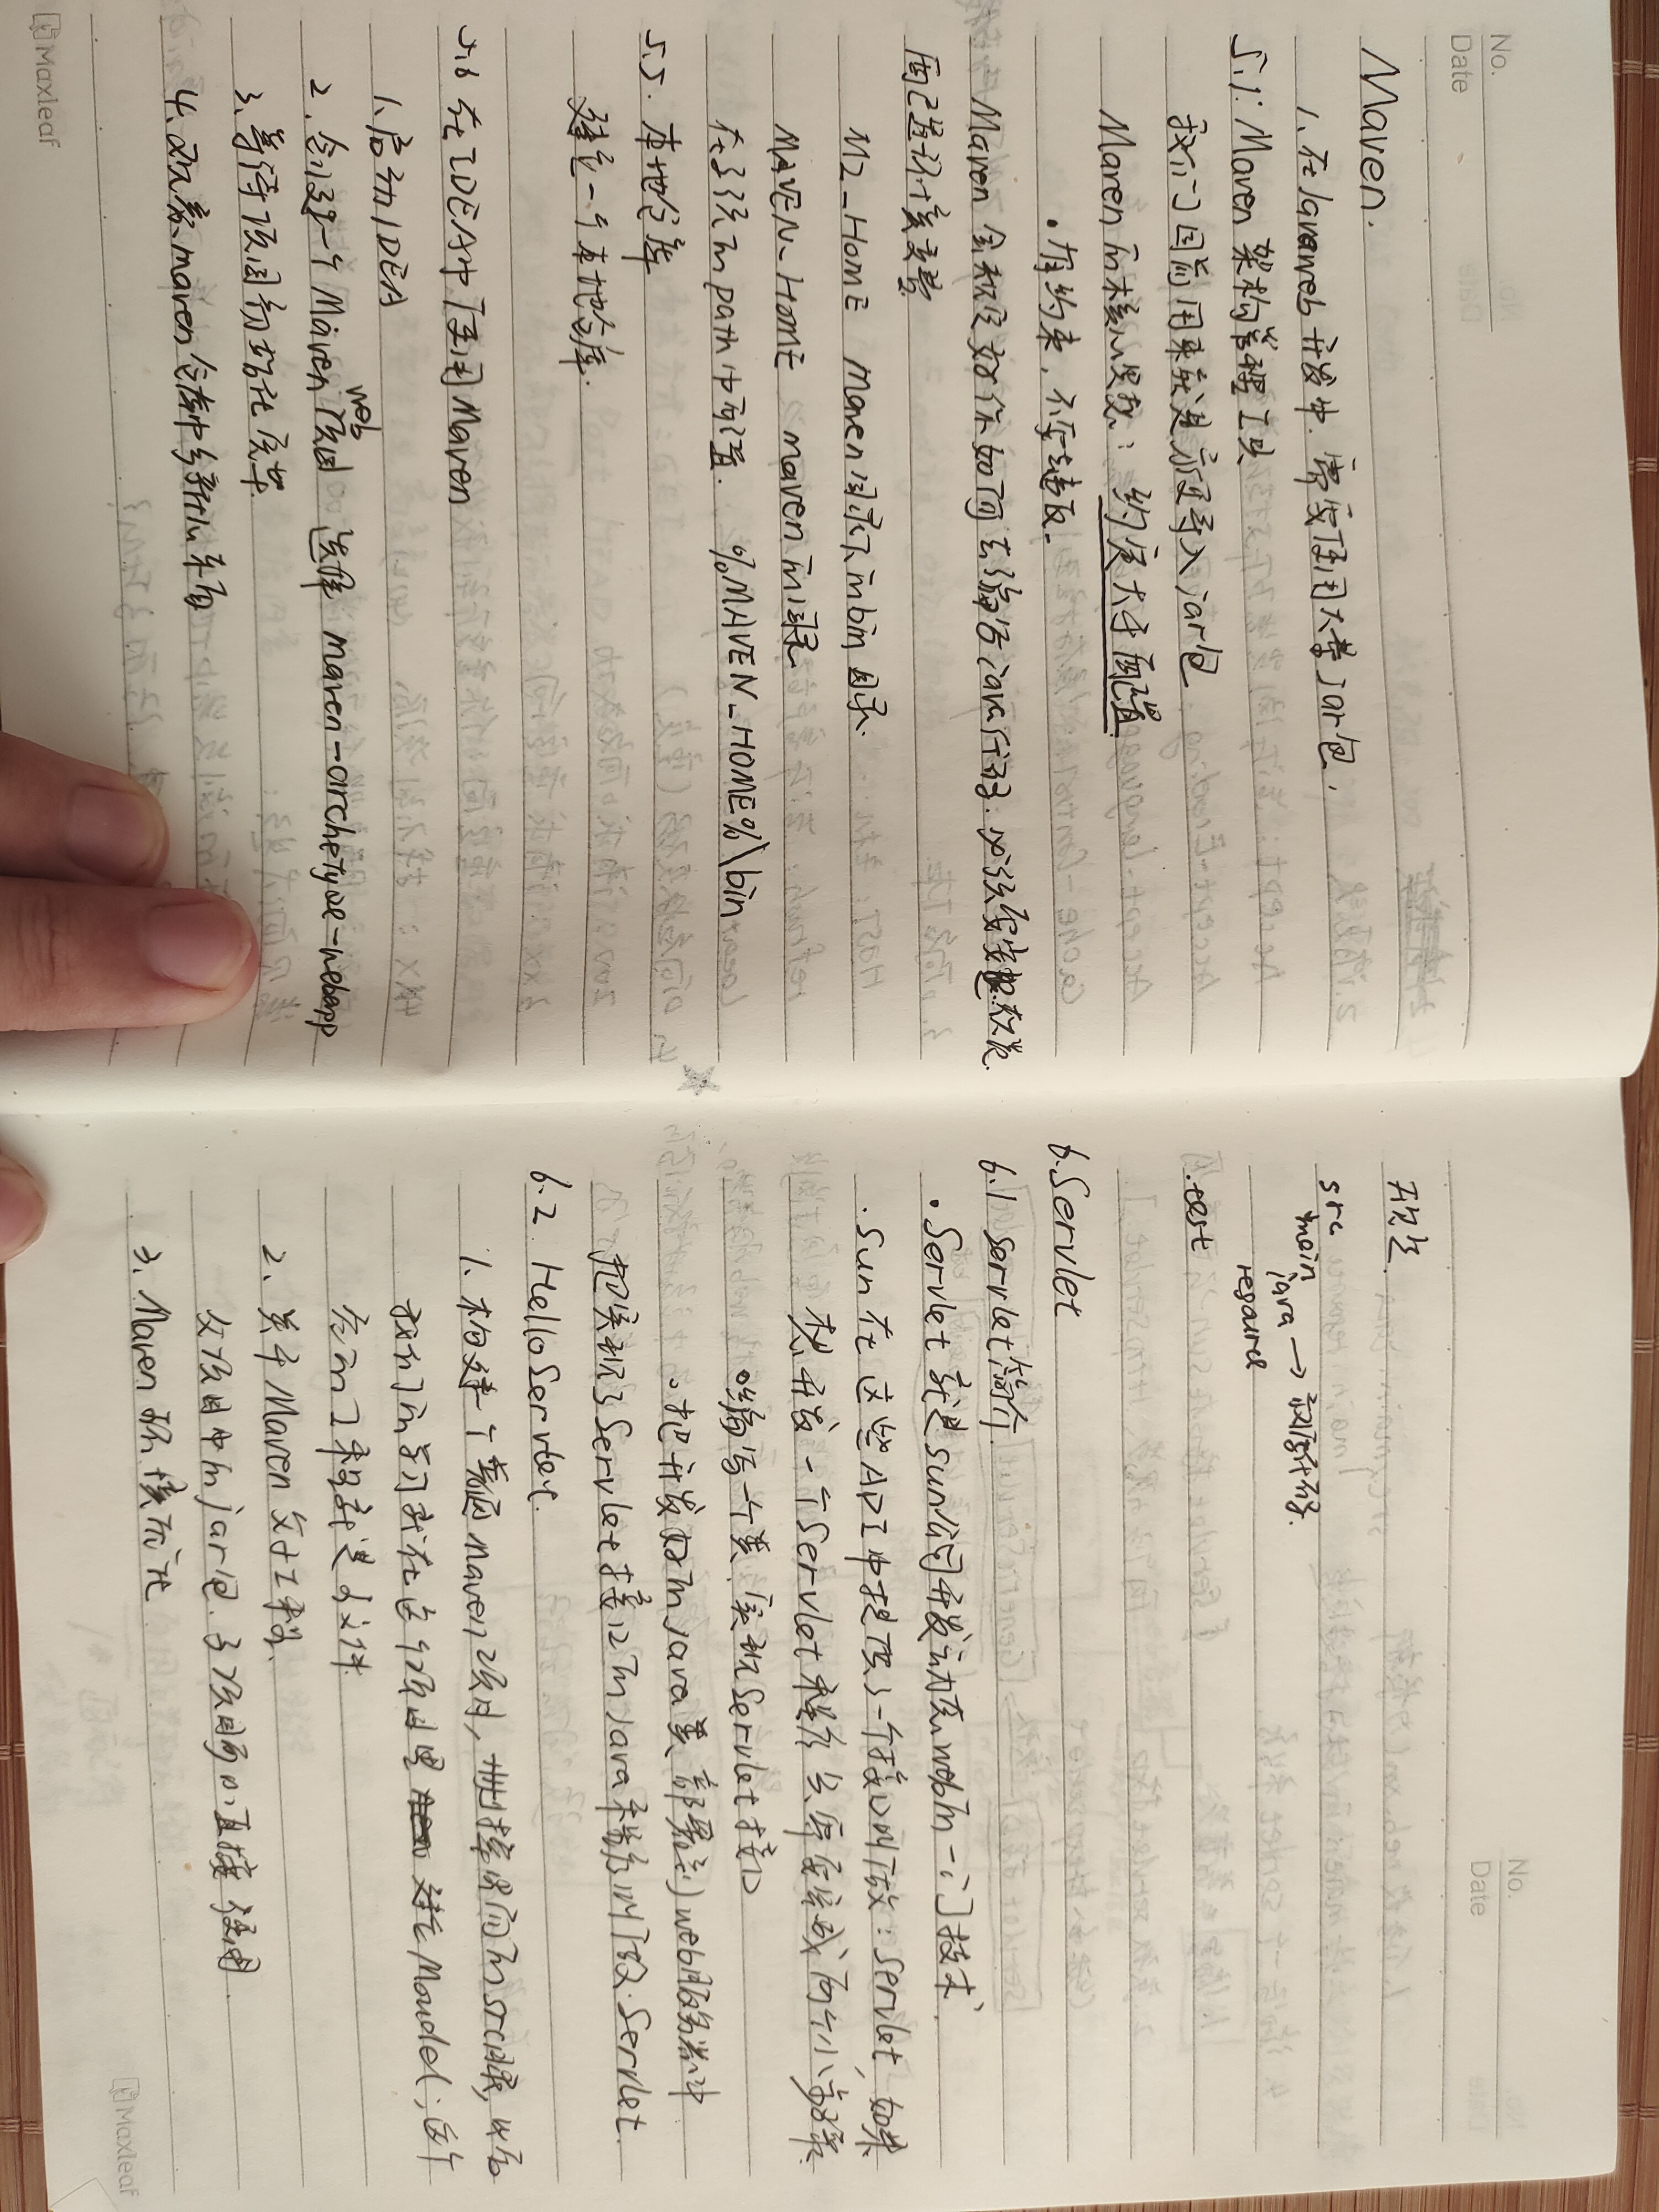 No.
Date
Maven.
1、在Javaweb开发中，需要使用大量jar包，
5.1：Maven 架构管理工具
我们目前用来就是方便导入jar包
Maven的核心思想：约定大于配置
·有约束，不要违反.
Maven会规定好你如何去编写java代码.必须
M2_HOME maven目录下的bin目录.
MAVEN_HOME maven的目录
在系统的path中配置. %MAVEN_HOME%\bin
5.5. 本地仓库
建立一个本地仓库.
5.6 在IDEA中使用Maven
1、启动IDEA
2、创建一个Maven web 项目 选择 maven-archetype-webapp
3、等待项目初始化完毕
4、观察maven仓库中多的东西
Maxleaf
No.
Date
src
main
java → 源代码.
resource
test
6.Servlet
6.1 servlet简介.
·Servlet就是sun公司开发动态web的一门技术
·Sun在这些API中提供了一个接口叫做：Servlet，如果
想开发一个Servlet程序，只需要完成两个小步骤.
。编写一个类，实现Servlet接口
。把开发好的java类部署到web服务器中
把实现了Servlet接口的Java程序叫做.Servlet.
6.2. HelloServlet.
1、构建一个普通maven项目，删掉里面的src目录，以后
我们的学习就在这个项目里 建立Moudel；这个
空的工程就是主工程
2、关于Maven父子工程.
父项目中的jar包.子项目可以直接使用.
3、Maven环境优化
Maxleaf